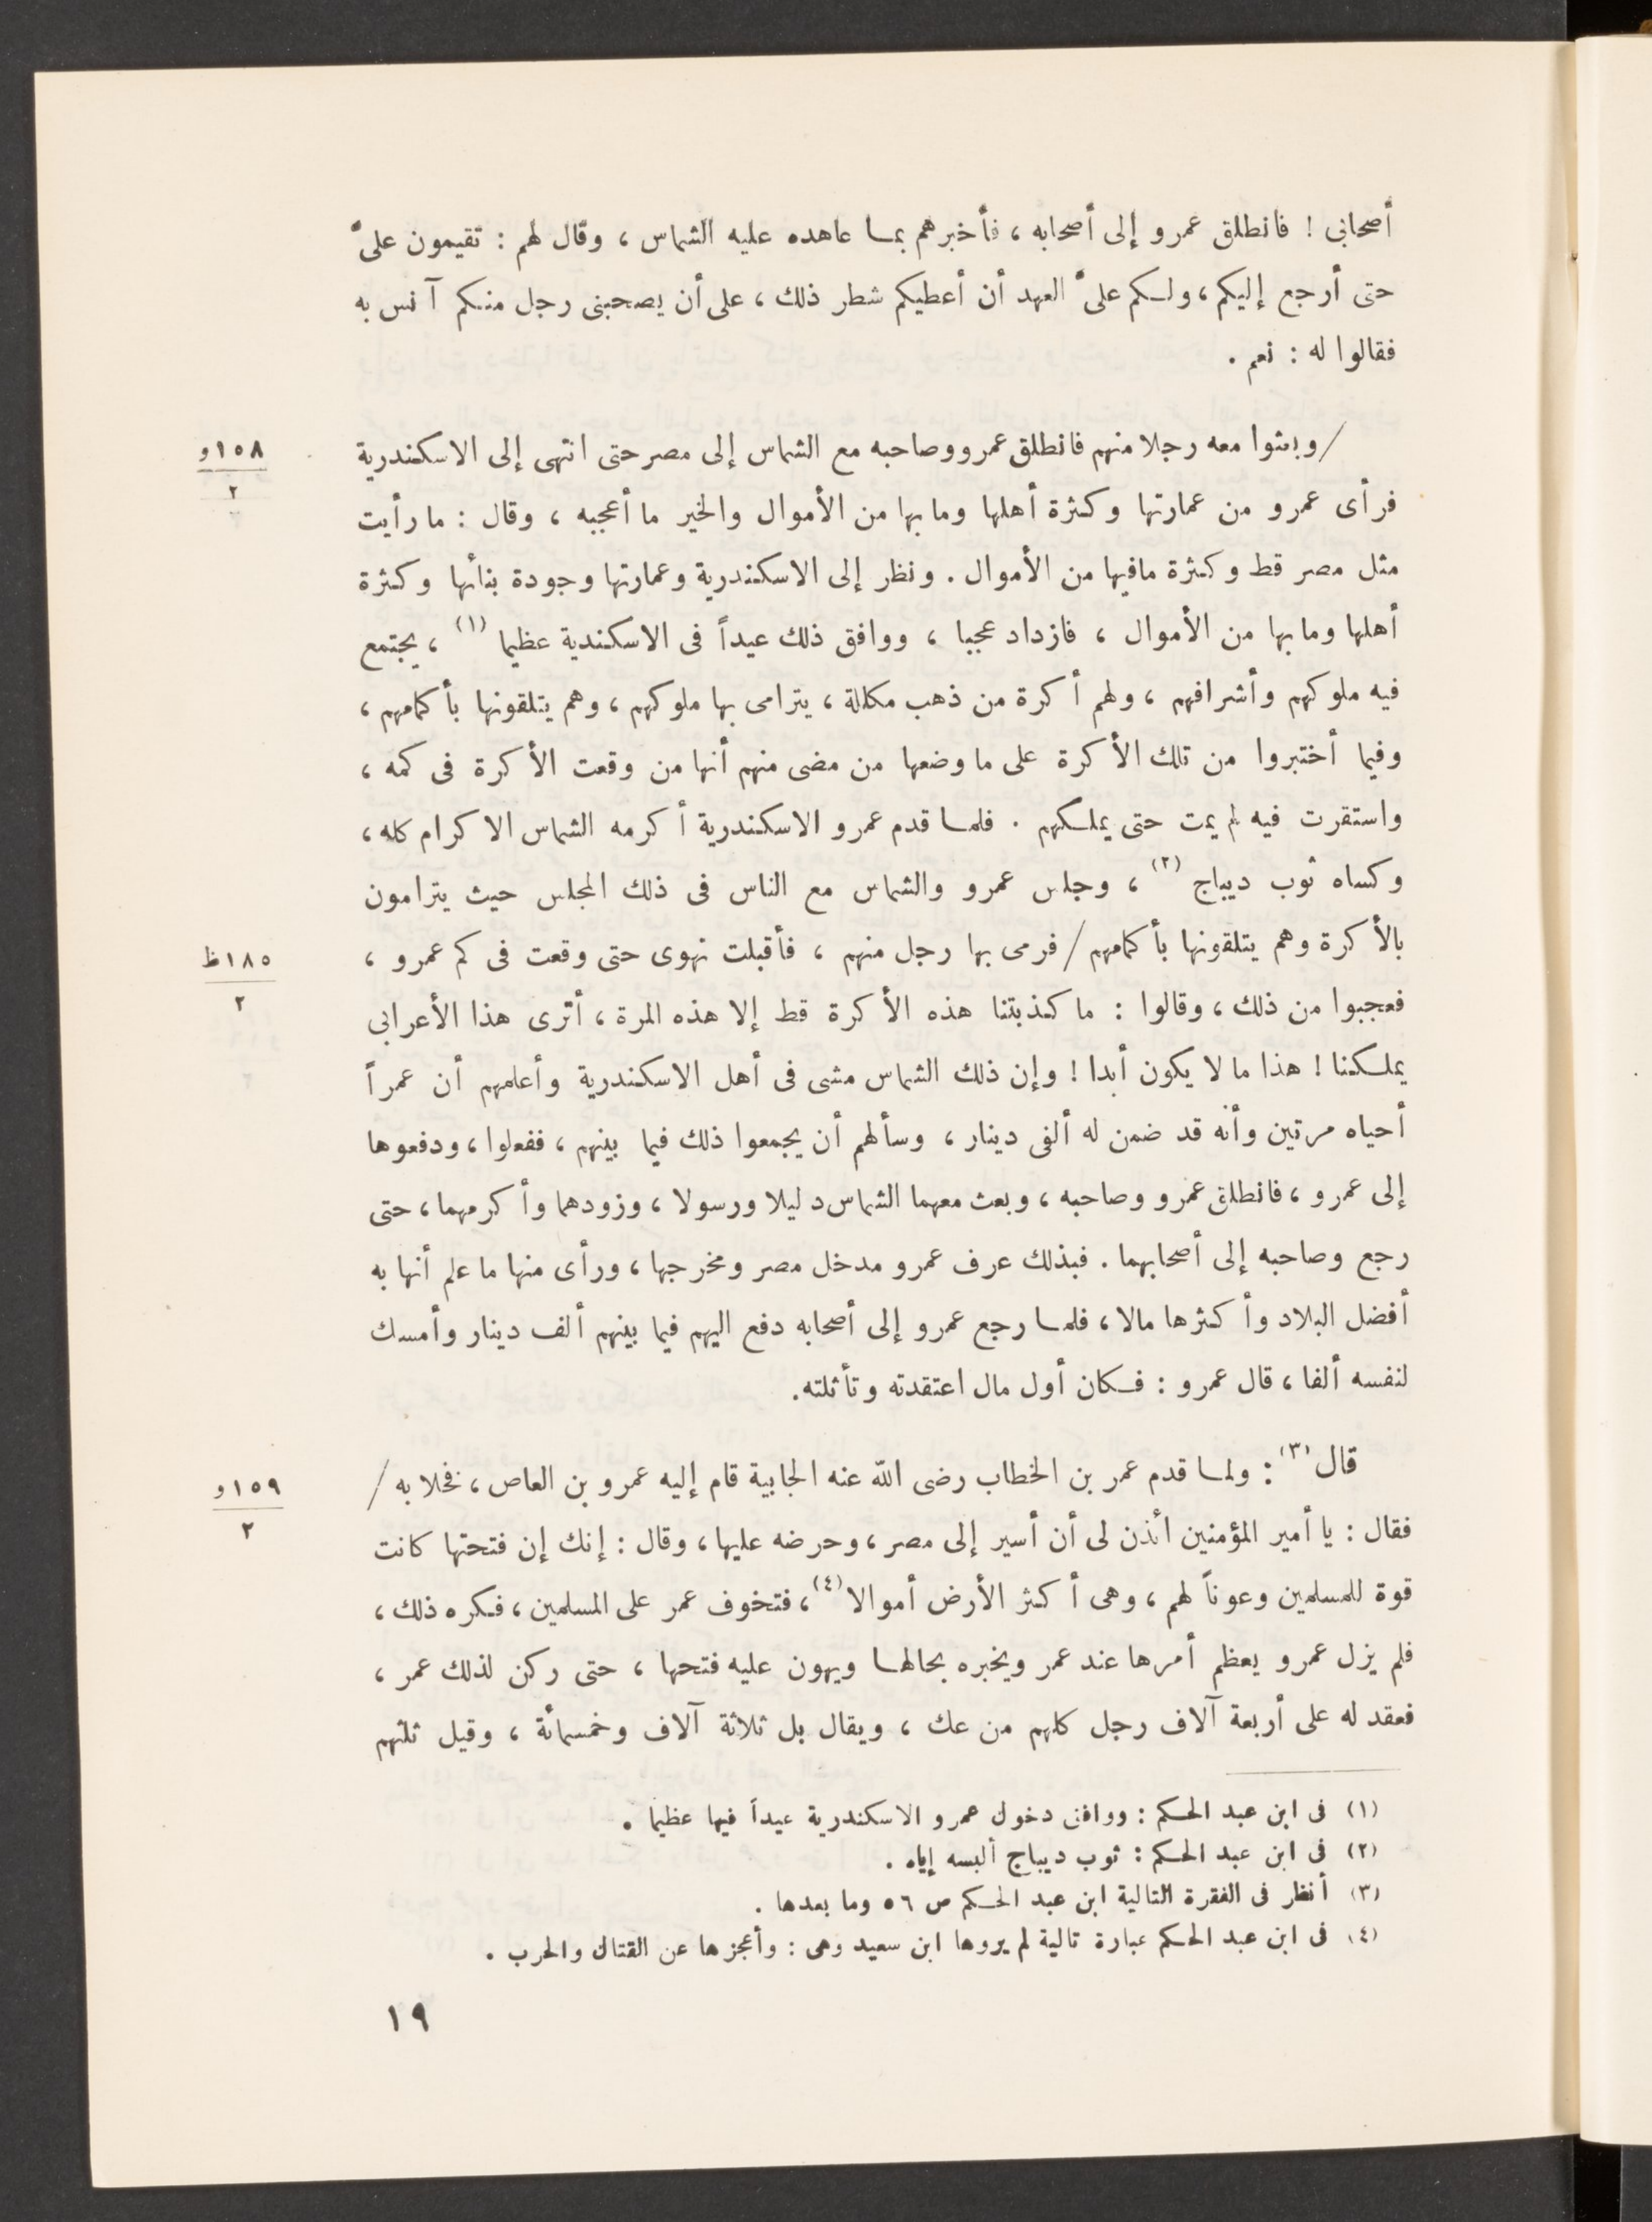 أصحابى ! فانطلق عمرو إلى أصحابه ، فأخبرهم بمـا عاهده عليه الشماس ، وقال لهم : تقيمون علىّ
حتى أرجع إليكم ، ولـكم علىّ العهد أن أعطيكم شطر ذلك ، على أن يصحبنى رجل منـكم آنس به
فقالوا له : نعم .
/ وبعثوا معه رجلا منهم فانطلق عمرو وصاحبه مع الشماس إلى مصر حتى انتهى إلى الاسكندرية
١٥٨و
٢
فرأى عمرو من عمارتها وكثرة أهلها وما بها من الأموال والخير ما أعجبه ، وقال : ما رأيت
مثل مصر قط وكثرة مافيها من الأموال . ونظر إلى الاسكندرية وعمارتها وجودة بنائها وكثرة
أهلها وما بها من الأموال ، فازداد عجبا ، ووافق ذلك عيداً فى الاسكندية عظيما (١) ، يجتمع
فيه ملوكهم وأشرافهم ، ولهم أكرة من ذهب مكللة ، يترامى بها ملوكهم ، وهم يتلقونها بأكمامهم ،
وفيما أختبروا من تلك الأكرة على ما وضعها من مضى منهم أنها من وقعت الأكرة فى كمه ،
واستقرت فيه لم يمت حتى يملـكهم . فلمـا قدم عمرو الاسكندرية أكرمه الشماس الاكرام كله ،
وكساه ثوب ديباج (٢) ، وجلس عمرو والشماس مع الناس فى ذلك المجلس حيث يترامون
بالأكرة وهم يتلقونها بأكمامهم / فرمى بها رجل منهم ، فأقبلت تهوى حتى وقعت فى كم عمرو ،
١٨٥ظ
٢
فعجبوا من ذلك ، وقالوا : ما كذبتنا هذه الأكرة قط إلا هذه المرة ، أترى هذا الأعرابى
يملـكنا ! هذا ما لا يكون أبدا ! وإن ذلك الشماس مشى فى أهل الاسكندرية وأعلمهم أن عمراً
أحياه مرتين وأنه قد ضمن له ألفى دينار ، وسألهم أن يجمعوا ذلك فيما بينهم ، ففعلوا ، ودفعوها
إلى عمرو ، فانطلق عمرو وصاحبه ، وبعث معهما الشماس دليلا ورسولا ، وزودهما وأكرمهما ، حتى
رجع وصاحبه إلى أصحابهما . فبذلك عرف عمرو مدخل مصر ومخرجها ، ورأى منها ما علم أنها به
أفضل البلاد وأكثرها مالا ، فلمـا رجع عمرو إلى أصحابه دفع اليهم فيما بينهم ألف دينار وأمسك
لنفسه ألفا ، قال عمرو : فـكان أول مال اعتقدته وتأثلته.
قال (٣) : ولمـا قدم عمر بن الخطاب رضى الله عنه الجابية قام إليه عمرو بن العاص ، فخلا به /
١٥٩و
٢
فقال : يا أمير المؤمنين ائذن لى أن أسير إلى مصر ، وحرضه عليها ، وقال : إنك إن فتحتها كانت
قوة للمسلمين وعوناً لهم ، وهى أكثر الأرض أموالا (٤) ، فتخوف عمر على المسلمين ، فـكره ذلك ،
فلم يزل عمرو يعظم أمرها عند عمر ويخبره بحالهـا ويهون عليه فتحها ، حتى ركن لذلك عمر ،
فعقد له على أربعة آلاف رجل كلهم من عك ، ويقال بل ثلاثة آلاف وخمسمائة ، وقيل ثلثهم
(١) فى ابن عبد الحـكم : ووافق دخول عمرو الاسكندرية عيداً فيها عظيما .
(٢) فى ابن عبد الحـكم : ثوب ديباج ألبسه إياه .
(٣) أنظر فى الفقرة التالية ابن عبد الحـكم ص ٥٦ وما بعدها .
(٤) فى ابن عبد الحـكم عبارة تالية لم يروها ابن سعيد وهى : وأعجزها عن القتال والحرب .
١٩